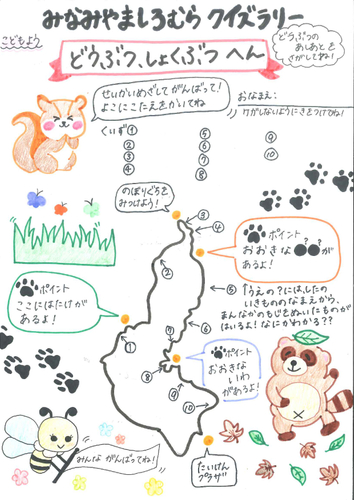 みなみやましろむら クイズラリー
こどもよう
どうぶつ、しょくぶつ へん
どうぶつの
あしあとを
さがしてね!
せいかいめざして がんばって!
よこにこたえをかいてね
おなまえ:
ケガしないようにきをつけてね!
くいず① ⑤ ⑨
② ⑥ ⑩
③ ⑦
④ ⑧
のぼりぐちを
みつけよう!
③
④
ポイント
おおきな●●が
あるよ!
②
ポイント
ここにはたけが
あるよ!
⑤
↑うえの?には、したの
いきもののなまえから、
まんなかのもじをぬいたものが
はいるよ!なにかわかる??
①
⑦
⑥
ポイント
おおきな
いわ
があるよ!
⑧
⑨
⑩
みんな がんばってね!
たいけん
プラザ